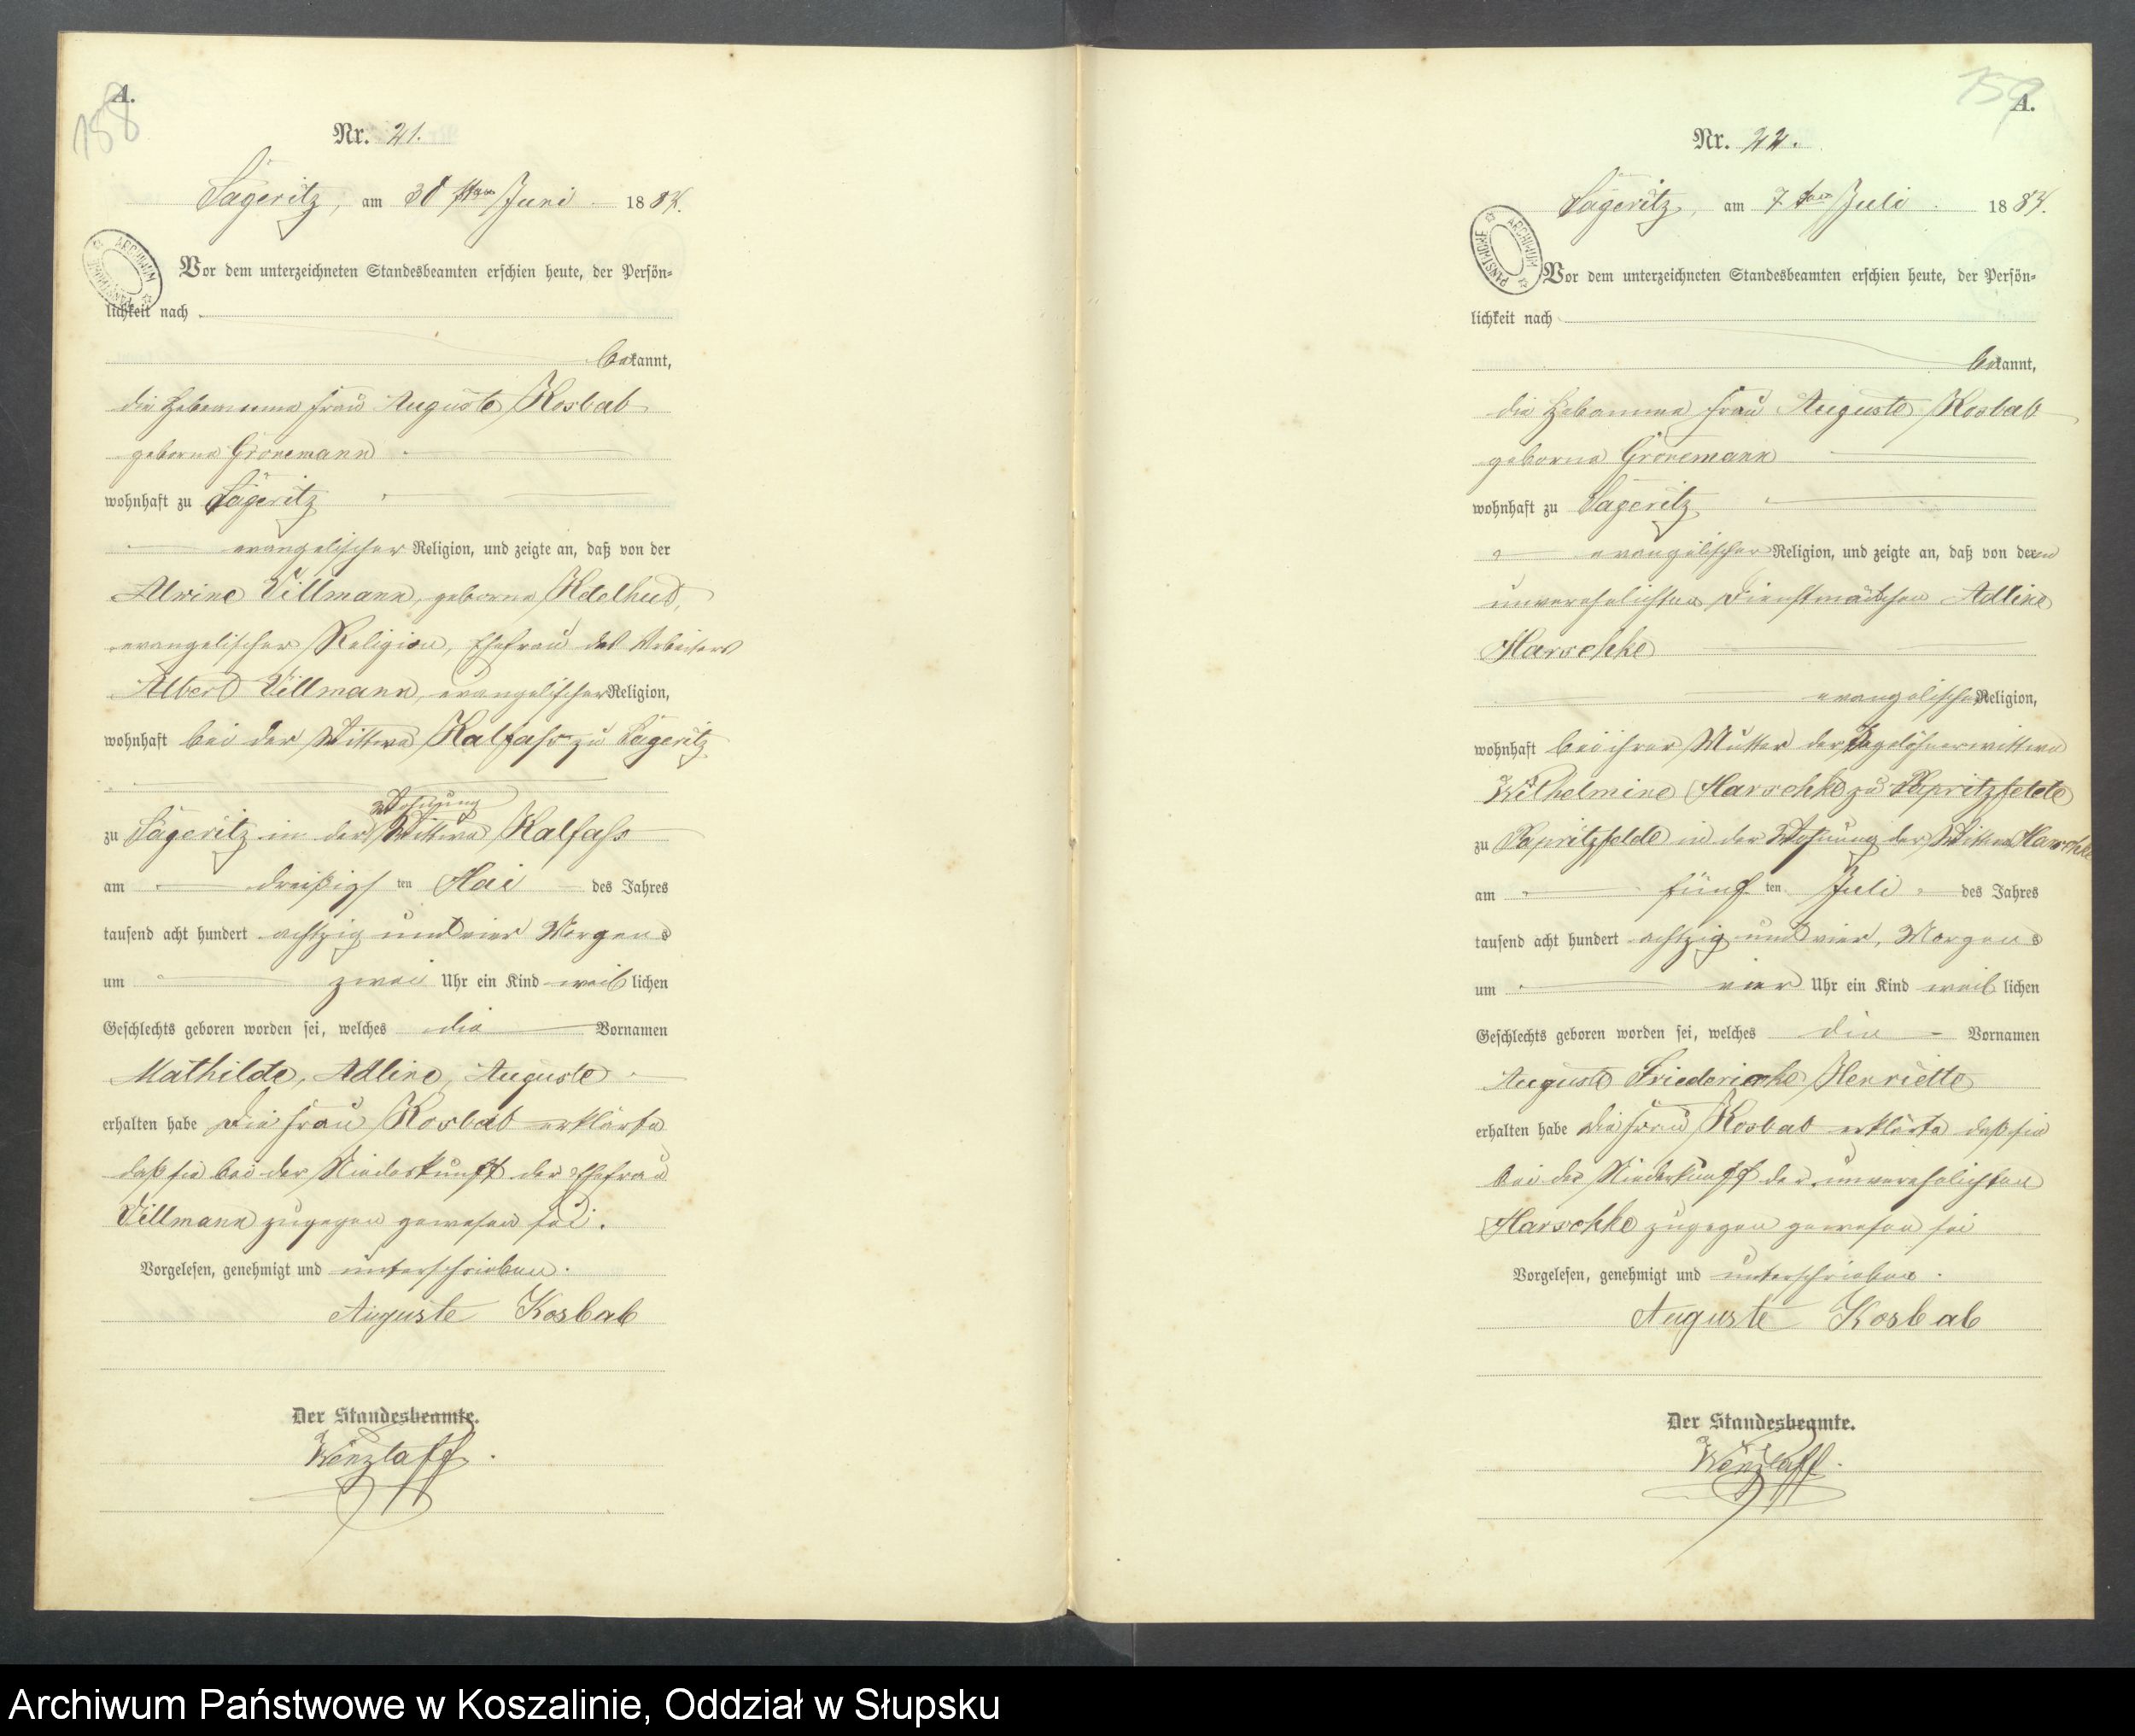 A.
158
Nr. 21.
Sageritz, am 30 sten Juni 1884.
ARCHIWUM PAŃSTWOWE
Vor dem unterzeichneten Standesbeamten erschien heute, der Persön-
lichkeit nach
bekannt,
die Hebamme Frau Auguste Kosbab
geborne Gronemann
wohnhaft zu Sageritz
evangelischer Religion, und zeigte an, daß von der
Alwine Villmann, geborne
evangelischer Religion, Ehefrau des Arbeiters
Albert Villmann, evangelischer Religion,
wohnhaft bei der Wittwe Kalfass zu Sageritz
Wohnung
zu Sageritz in der Wittwe Kalfass
am dreißigsten Mai des Jahres
tausend acht hundert achtzig und vier Morgens
um zwei Uhr ein Kind weiblichen
Geschlechts geboren worden sei, welches die Vornamen
Mathilde, Adline, Auguste
erhalten habe Die Frau Kosbab erklärte
daß sie bei der Niederkunft der Ehefrau
Villmann zugegen gewesen sei.
Vorgelesen, genehmigt und unterschrieben.
Auguste Kosbab
Der Standesbeamte.
Wenzlaff.
159
A.
Nr. 22.
Sageritz, am 7 ten Juli 1884.
ARCHIWUM PAŃSTWOWE
Vor dem unterzeichneten Standesbeamten erschien heute, der Persön-
lichkeit nach
bekannt,
die Hebamme Frau Auguste Kosbab
geborne Gronemann
wohnhaft zu Sageritz
evangelischer Religion, und zeigte an, daß von der
unverehelichten Dienstmädchen Adline
Harschke
evangelischer Religion,
wohnhaft bei ihrer Mutter der Tagelöhnerwittwe
Wilhelmine Harschke zu Papritzfelde
zu Papritzfelde in der Wohnung der Wittwe Harschke
am fünften Juli des Jahres
tausend acht hundert achtzig und vier, Morgens
um vier Uhr ein Kind weiblichen
Geschlechts geboren worden sei, welches die Vornamen
Auguste Friedericke Henriette
erhalten habe Die Frau Kosbab erklärte daß sie
bei der Niederkunft der unverehelichten
Harschke zugegen gewesen sei
Vorgelesen, genehmigt und unterschrieben.
Auguste Kosbab
Der Standesbeamte.
Wenzlaff.
Archiwum Państwowe w Koszalinie, Oddział w Słupsku